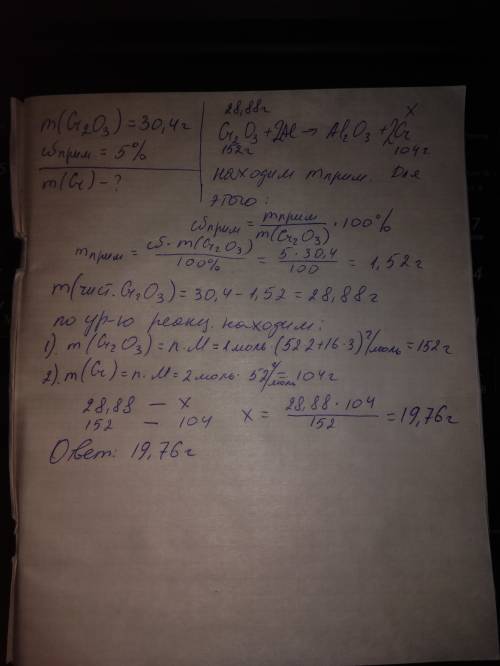 m(Cr₂O₃) = 30,4г
ωприм = 5%
m(Cr) - ?
28,88г x
Cr₂O₃ + 2Al → Al₂O₃ + 2Cr
152г 104г
находим mприм. Для
этого:
ωприм = mприм / m(Cr₂O₃) · 100%
mприм = ω · m(Cr₂O₃) / 100% = 5 · 30,4 / 100 = 1,52г
m(чист. Cr₂O₃) = 30,4 - 1,52 = 28,88г
по ур-ю реакц. находим:
1). m(Cr₂O₃) = n · M = 1моль · (52·2+16·3) г/моль = 152г
2). m(Cr) = n · M = 2моль · 52 г/моль = 104г
28,88 — x x = 28,88 · 104 / 152 = 19,76г
152 — 104
Ответ: 19,76г